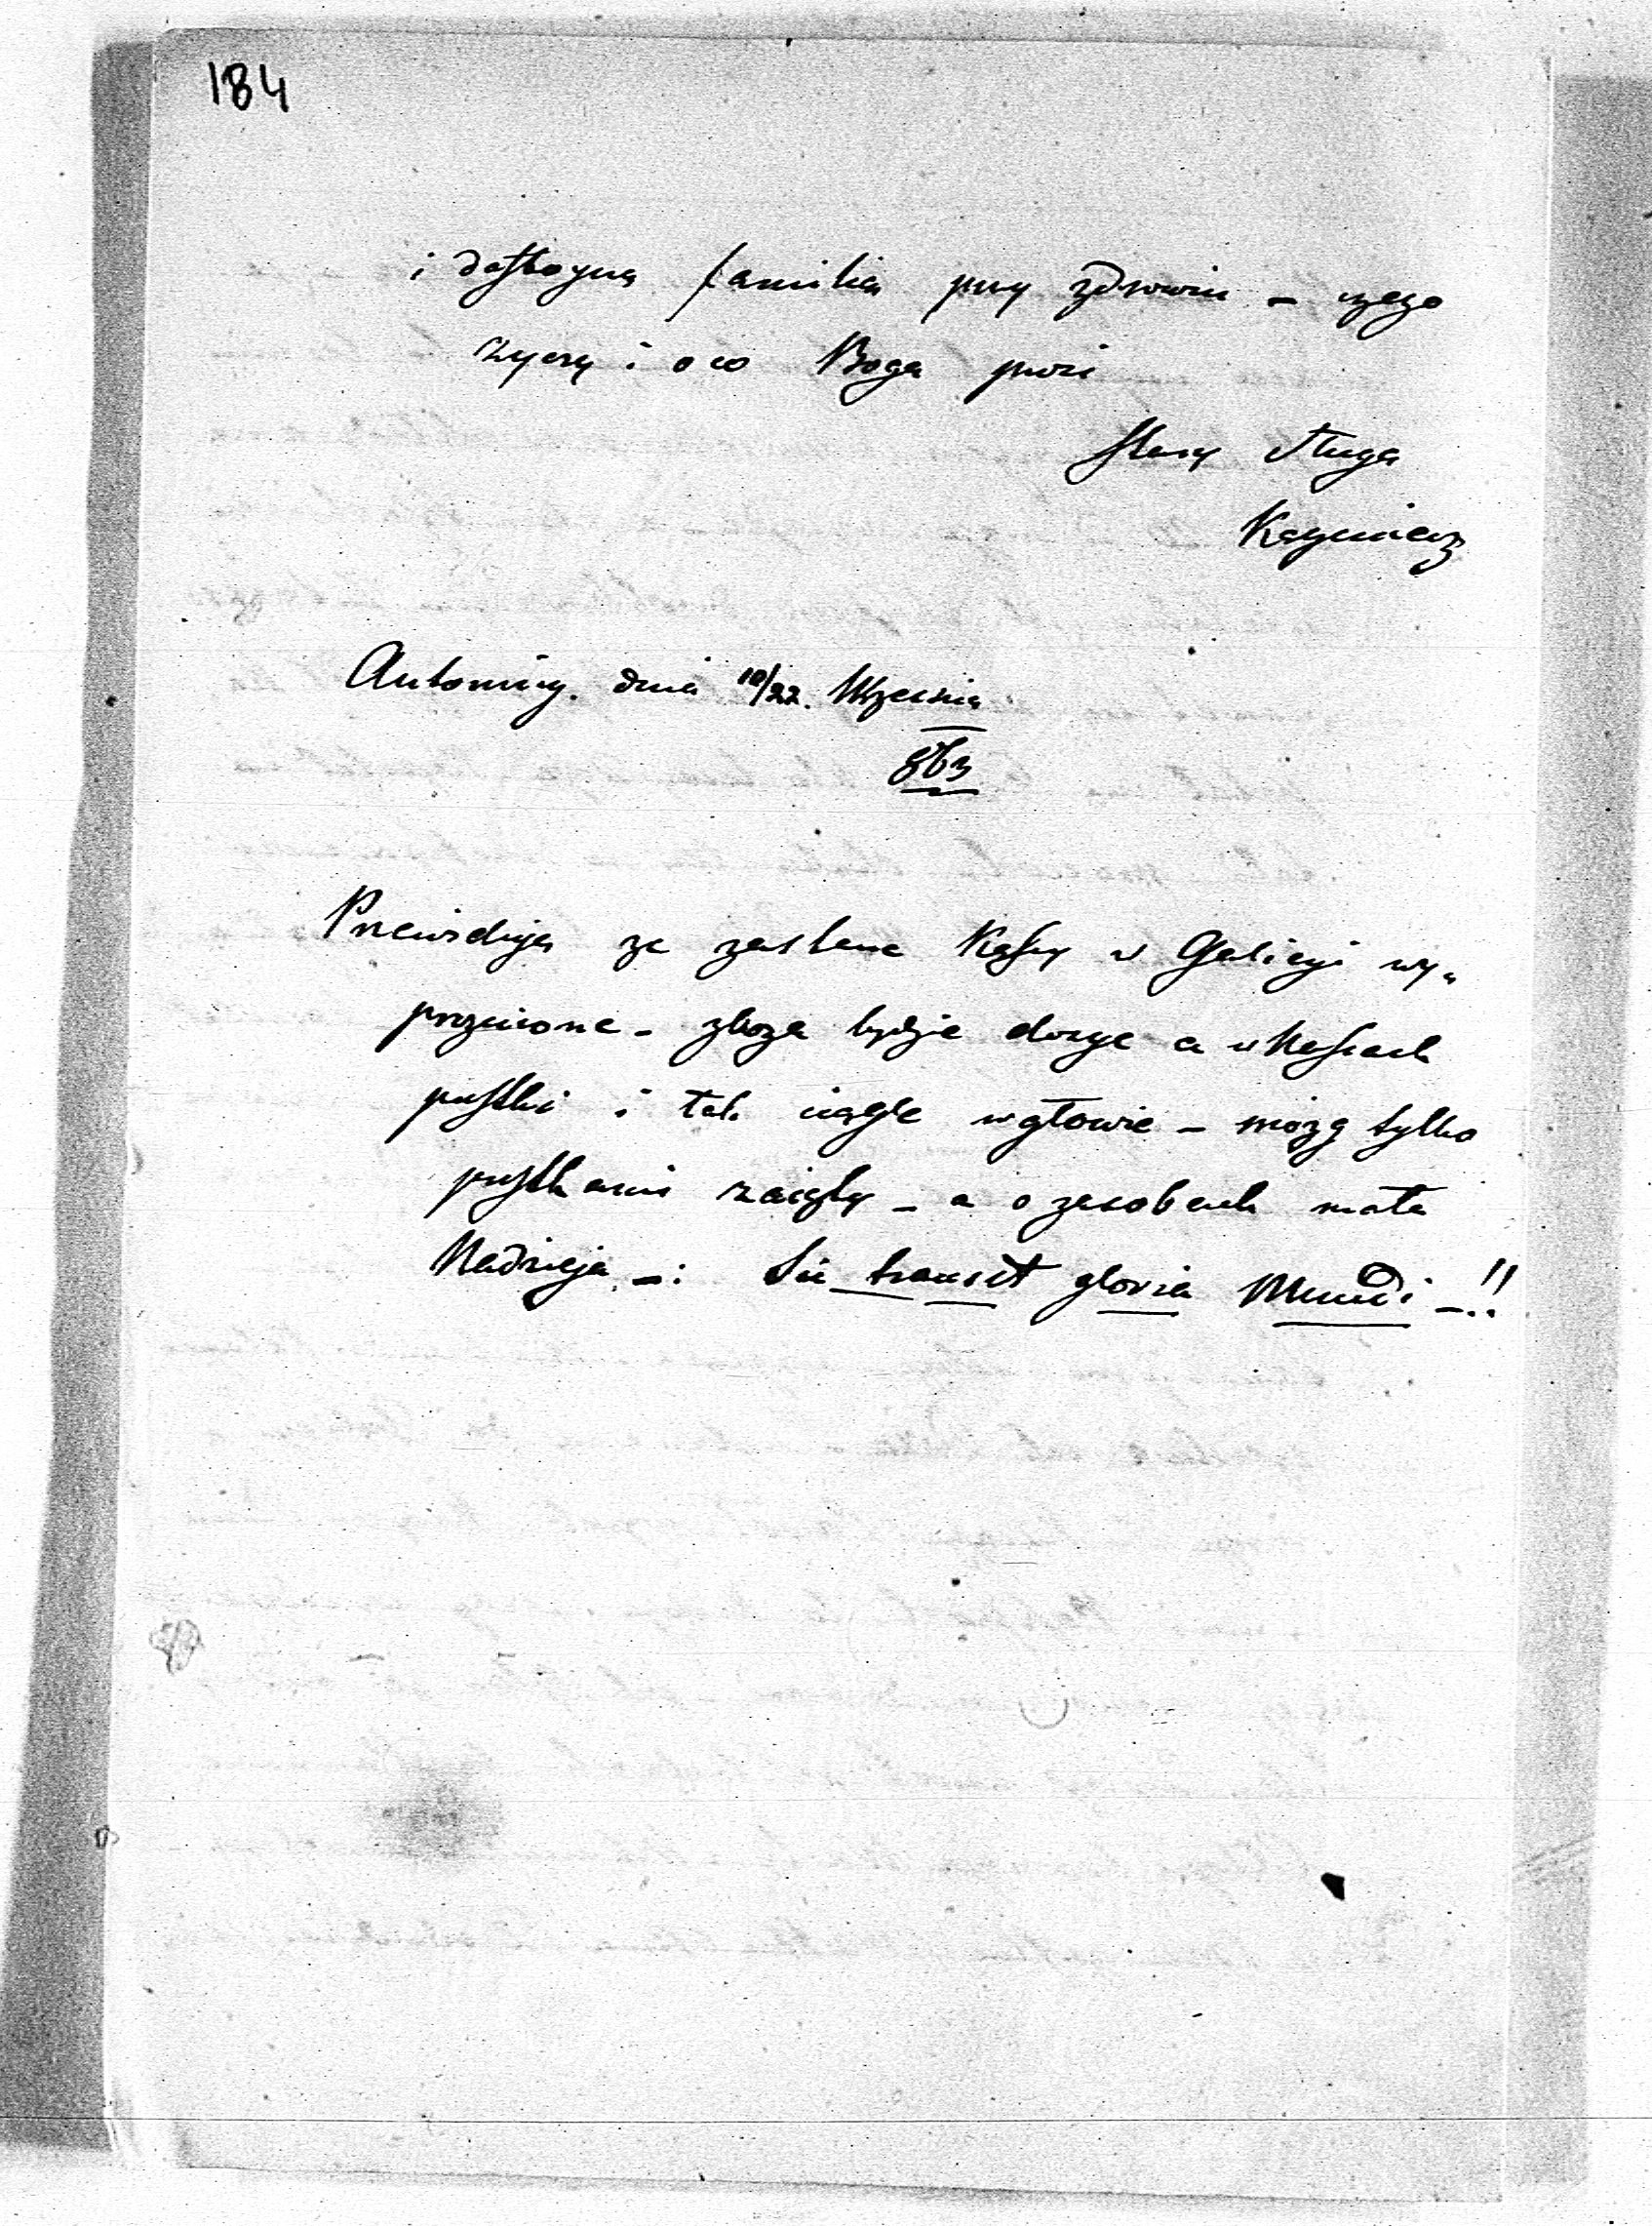 184
i dostoyną familią przy zdrowiu – czego
życzy i o co Boga prosi
Stary Sługa
Kazimierz
Antoniny. dnia 10/22. Września
863
Przewiduję że zasłane Kassy w Galicyi wy„
próżnione – zboża będzie dosyć a w Kassach
pustki i tak ciągle w głowie – mózg tylko
pustkami zaięty – a o zasobach mała
Nadzieja –: Sic transit gloria Mundi –!!